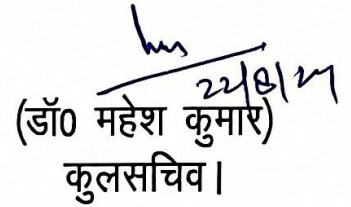 22/8/24
(डॉ0 महेश कुमार)
कुलसचिव।